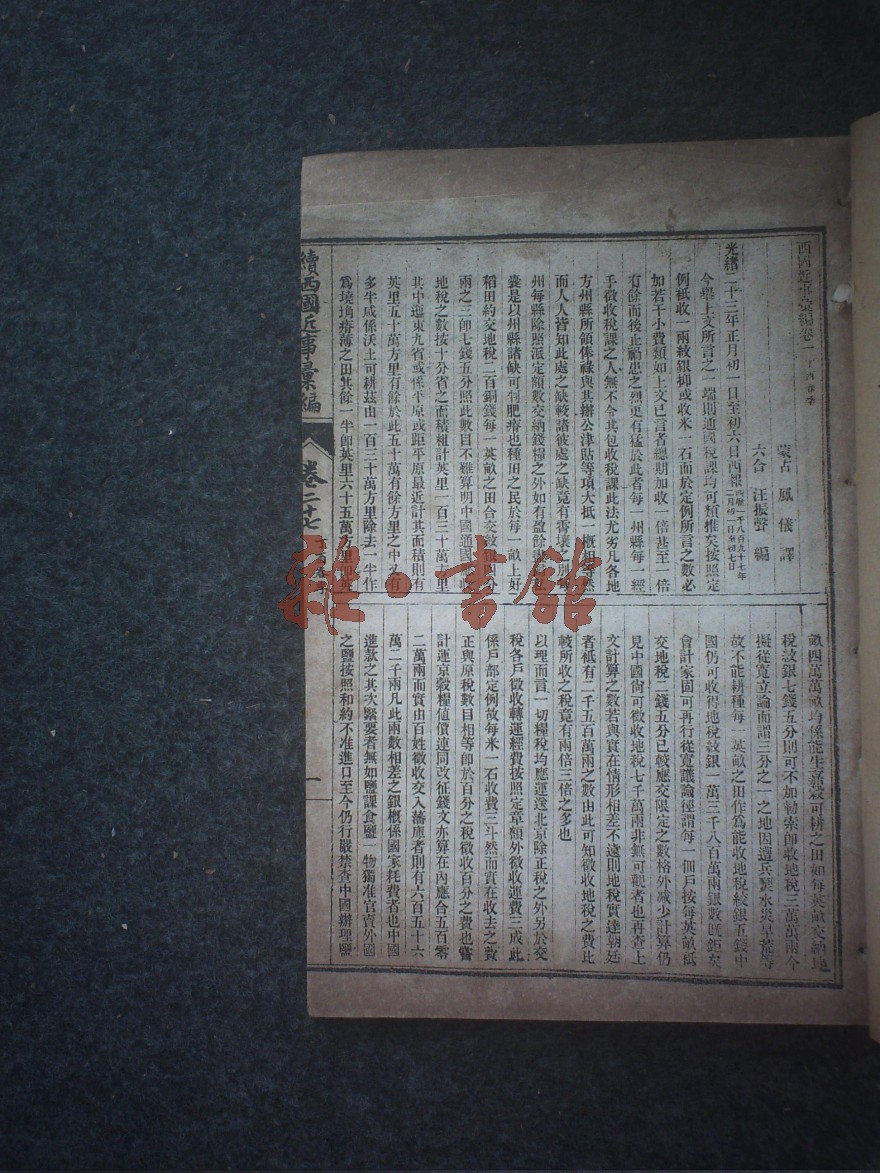 西國近事彙編卷一丁酉春季
蒙古 鳳儀 譯
六合 汪振聲 編
光緒二十三年正月初一日至初六日西報西歷一千八百九十七年二月初一日至初七日
今舉上文所言之一端則通國稅課均可類推矣按照定
例祗收一兩紋銀抑或收米一石而於定例所言之數必
加若干小費類如上文已言者總期加收一倍甚至一倍
有餘而後止禍患之烈更有猛於此者每一州縣每一經
手徵收稅課之人無不令其包收稅課此法尤劣凡各地
方州縣所領俸祿與其辦公津貼等項大抵一槪相等然
而人人皆知此處之缺較諸彼處之缺竟有霄壤之別每
州每縣除照派定額數交納錢糧之外如有盈餘
囊是以州縣諸缺可判肥瘠也種田之民於每一畝上好
稻田約交地稅二百銅錢每一英畝之田合交紋銀四分
兩之三卽七錢五分照此數目不難算明中國通國
地稅之數按十分省之面積粗計英里一百三十萬方里
其中迤東九省或係平原或距平原最近計其面積則有
英里五十萬方里有餘於此五十萬有餘方里之中又有
多半咸係沃土可耕茲由一百三十萬方里除去一半作
爲墝埆瘠薄之田其餘一半卽英里六十五萬方里
畝四萬萬畝均係能生嘉穀可耕之田如每英畝交納地
稅紋銀七錢五分則可不加勒索卽收地稅三萬萬兩今
擬從寬立論而謂三分之一之地因遭兵燹水災旱荒等
故不能耕種每一英畝之田作爲能收地稅紋銀五錢中
國仍可收得地稅紋銀一萬三千八百萬兩銀數旣鉅矣
會計家固可再行從寬議論徑謂每一佃戶按每英畝祗
交地稅二錢五分已較應交限定之數格外減少計算仍
見中國尙可徵收地稅七千萬兩非無可觀者也再查上
文計算之數若與實在情形相差不遠則地稅實達朝廷
者祗有二千五百萬兩之數由此可知徵收地稅之費比
較所收之稅竟有兩倍三倍之多也
以理而言一切糧稅均應運送北京除正稅之外另於交
稅各戶徵收轉運經費按照定章額外徵收運費三成此
係戶部定例故每米一石收費三斗然而實在收去之數
正與原稅數目相等卽於百分之稅徵收百分之費也嘗
計運京穀糧値價連同改征錢文亦算在內應合五百零
二萬兩而實由百姓徵收交入藩庫者則有六百五十六
萬二千兩凡此兩數相差之銀槪係國家耗費者也中國
進款之其次緊要者無如鹽課食鹽一物獨准官賣外國
之鹽按照和約不准進口至今仍行嚴禁查中國辦理鹽
續西國近事彙編
卷二十七
一
雜·書館